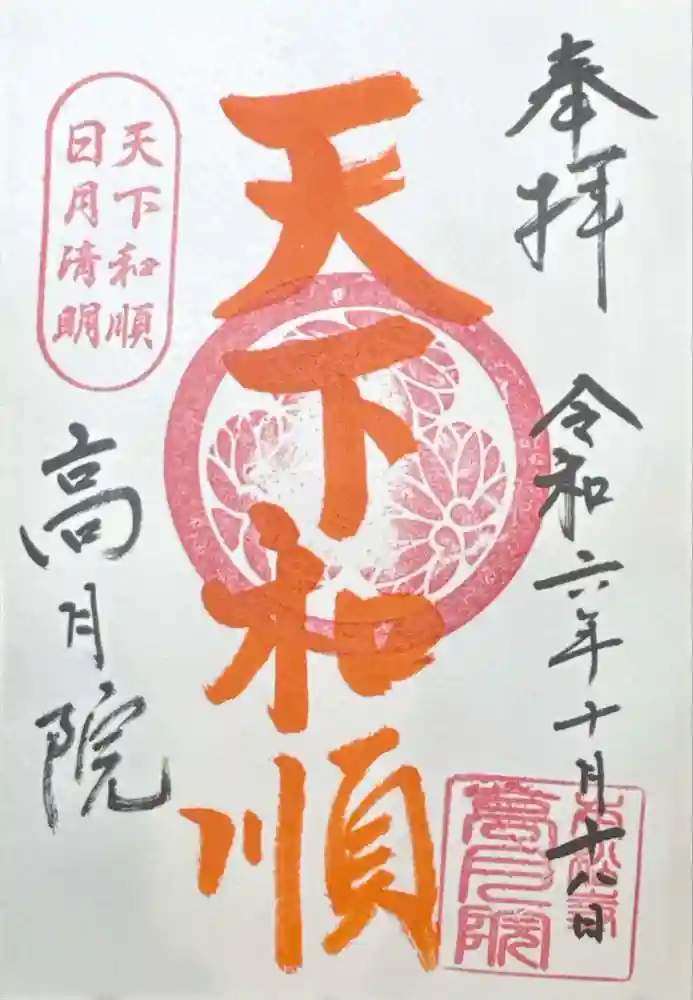 奉拝
令和六年十月十八日
天下和順
天下和順
日月清明
高月院